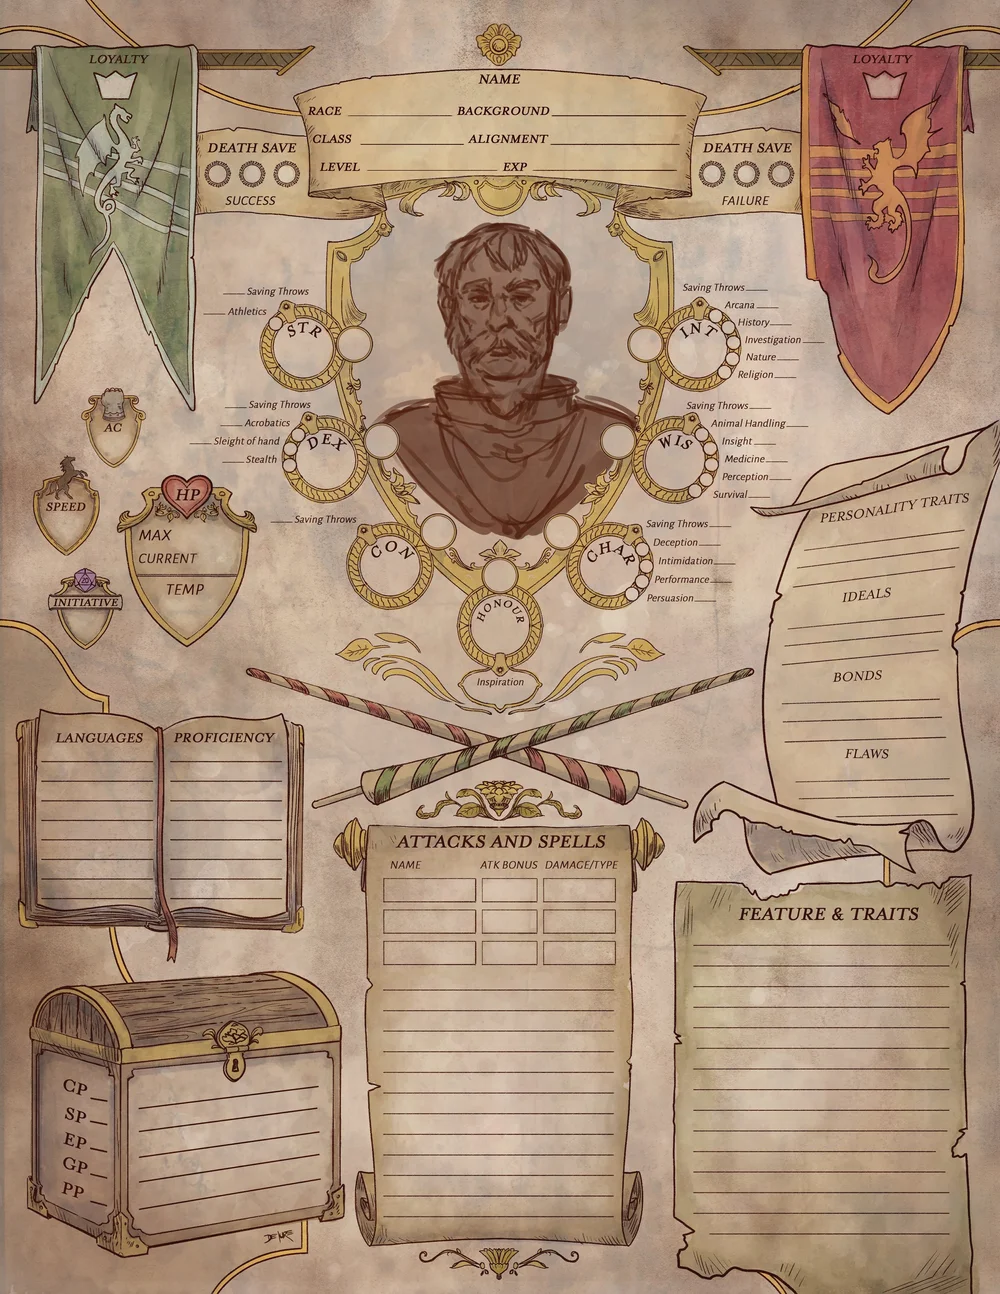 LOYALTY
LOYALTY
NAME
RACE
BACKGROUND
CLASS
ALIGNMENT
LEVEL
EXP
DEATH SAVE
SUCCESS
DEATH SAVE
FAILURE
Saving Throws
Athletics
STR
Saving Throws
Acrobatics
Sleight of hand
Stealth
DEX
Saving Throws
CON
Saving Throws
Arcana
History
Investigation
Nature
Religion
INT
Saving Throws
Animal Handling
Insight
Medicine
Perception
Survival
WIS
Saving Throws
Deception
Intimidation
Performance
Persuasion
CHAR
HONOUR
Inspiration
AC
SPEED
HP
MAX
CURRENT
TEMP
20
INITIATIVE
PERSONALITY TRAITS
IDEALS
BONDS
FLAWS
LANGUAGES
PROFICIENCY
ATTACKS AND SPELLS
NAME ATK BONUS DAMAGE/TYPE
FEATURE & TRAITS
CP
SP
EP
GP
PP